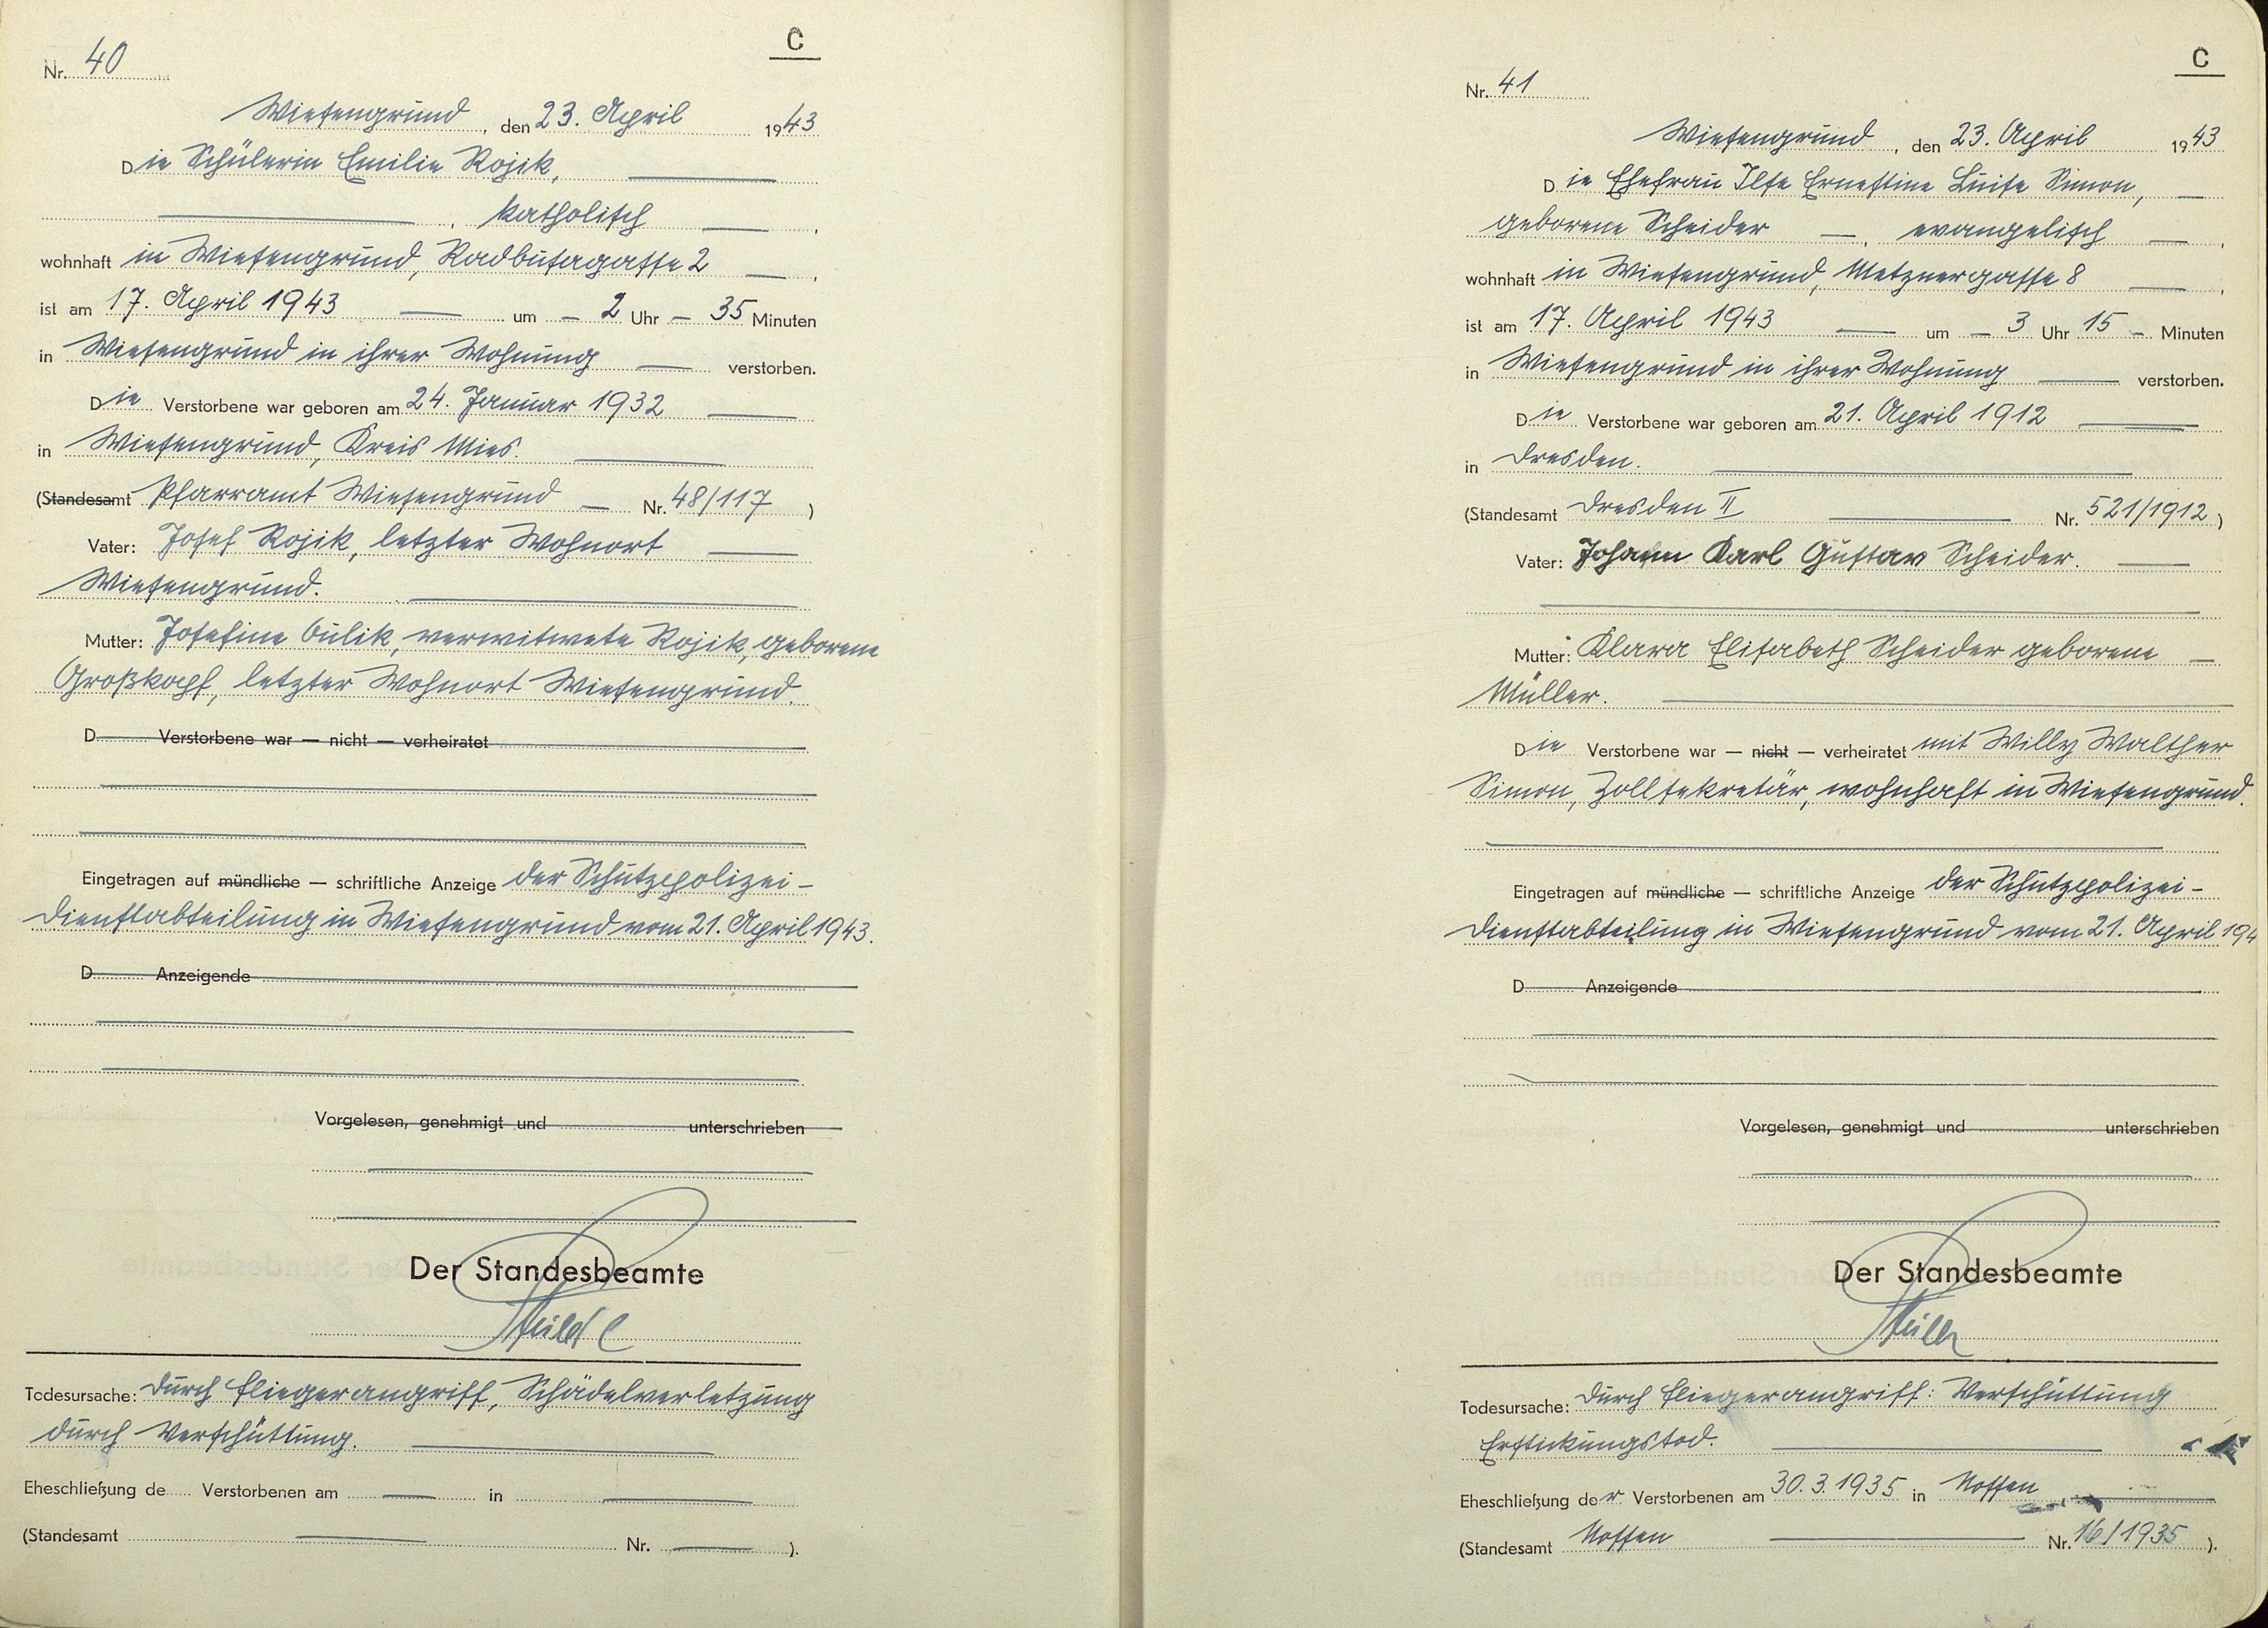 C
Nr. 40
Wiesengrund, den 23. April 1943
Die Schülerin Emilie Rojik,
, katholisch ,
wohnhaft in Wiesengrund, Radbusagasse 2 ,
ist am 17. April 1943 — um — 2 Uhr — 35 Minuten
in Wiesengrund in ihrer Wohnung — verstorben.
Die Verstorbene war geboren am 24. Januar 1932 —
in Wiesengrund, Kreis Mies. —
(Standesamt Pfarramt Wiesengrund — Nr. 48/117 )
Vater: Josef Rojik, letzter Wohnort —
Wiesengrund. —
Mutter: Josefine Culik, verwitwete Rojik, geborene
Großkopf, letzter Wohnort Wiesengrund.
D Verstorbene war — nicht — verheiratet
Eingetragen auf mündliche — schriftliche Anzeige der Schutzpolizei-
dienstabteilung in Wiesengrund vom 21. April 1943.
D Anzeigende
Vorgelesen, genehmigt und unterschrieben
Der Standesbeamte
Todesursache: durch Fliegerangriff, Schädelverletzung
durch Verschüttung. —
Eheschließung de Verstorbenen am — in —
(Standesamt — Nr. — ).
C
Nr. 41
Wiesengrund, den 23. April 1943
Die Ehefrau Ilse Ernestine Luise Simon, —
geborene Scheider —, evangelisch — ,
wohnhaft in Wiesengrund, Metznergasse 8 — ,
ist am 17. April 1943 — um — 3 Uhr 15 — Minuten
in Wiesengrund in ihrer Wohnung — verstorben.
Die Verstorbene war geboren am 21. April 1912 —
in Dresden. —
(Standesamt Dresden II — Nr. 521/1912 )
Vater: Johann Karl Gustav Scheider. —
Mutter: Klara Elisabeth Scheider geborene —
Müller. —
Die Verstorbene war — nicht — verheiratet mit Willy Walther
Simon, Zollsekretär, wohnhaft in Wiesengrund.
Eingetragen auf mündliche — schriftliche Anzeige der Schutzpolizei-
dienstabteilung in Wiesengrund vom 21. April 194
D Anzeigende
Vorgelesen, genehmigt und unterschrieben
Der Standesbeamte
Todesursache: durch Fliegerangriff: Verschüttung
Erstickungstod. —
Eheschließung der Verstorbenen am 30.3.1935 in Nossen —
(Standesamt Nossen — Nr. 16/1935 ).